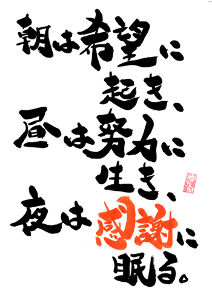 朝は希望に
起き、
昼は努力に
生き、
夜は感謝に
眠る。